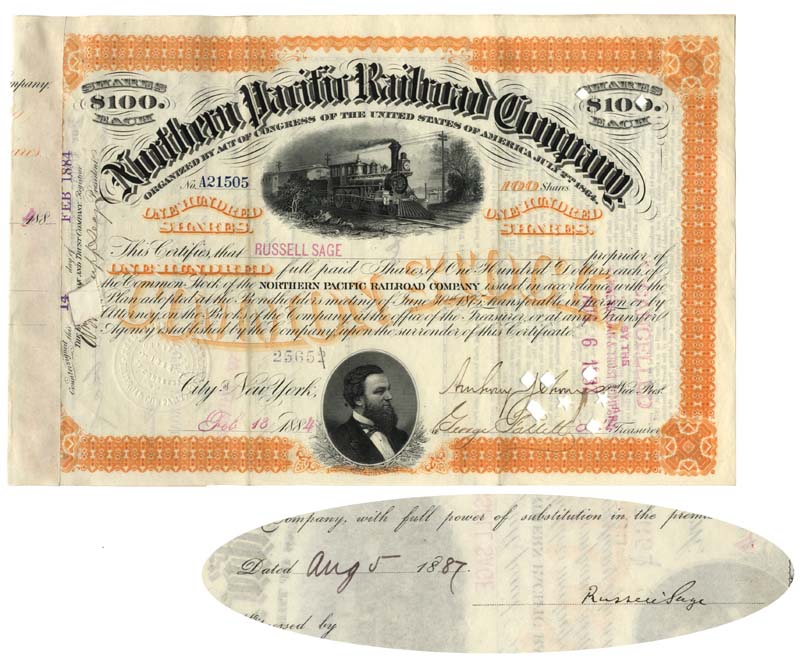 SHARES
$100.
EACH
Northern Pacific Railroad Company,
SHARES
$100.
EACH
ORGANIZED BY ACT OF CONGRESS OF THE UNITED STATES OF AMERICA JULY 2ND 1864.
No. A21505
100 Shares
ONE HUNDRED
SHARES.
ONE HUNDRED
SHARES.
This Certifies that RUSSELL SAGE proprietor of
ONE HUNDRED full paid Shares of One Hundred Dollars each of
the Common Stock of the NORTHERN PACIFIC RAILROAD COMPANY issued in accordance with the
Plan adopted at the Bondholders meeting of June 30th 1875 transferable in person or by
Attorney, on the Books of the Company at the office of the Treasurer, or at any Transfer
Agency established by the Company, upon the surrender of this Certificate.
25652
City of New York,
Feb 13 1884
Vice Pres.
George
Treasurer
Company.
Countersigned this 14 day of FEB 1884
Company, with full power of substitution in the
Dated Aug 5 1887.
Russell Sage
by